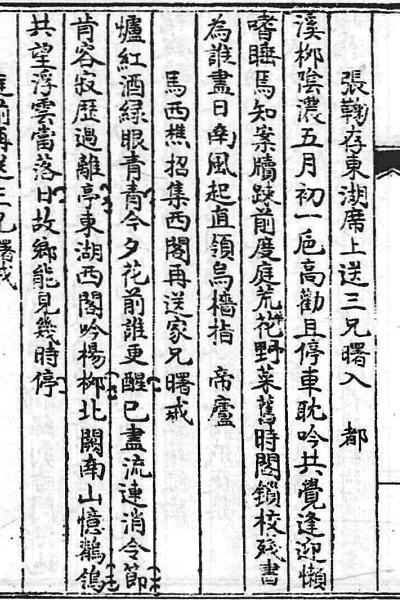 張鞠存東湖席上送三兄曙入　都
溪柳陰濃五月初一巵高勸且停車耽吟共覺逢迎懶
嗜睡焉知案牘踈前度庭荒花野菜舊時閣鎖校殘書
為誰盡日南風起直領烏檣指　帝廬
馬西樵招集西閣再送家兄曙戒
爐紅酒緑眼青青今夕花前誰更醒已盡流連消令節
肯容寂歷過離亭東湖西閣吟楊柳北闕南山憶鶺鴒
共望浮雲當落日故鄉能見幾時停
前再送三兄曙戒